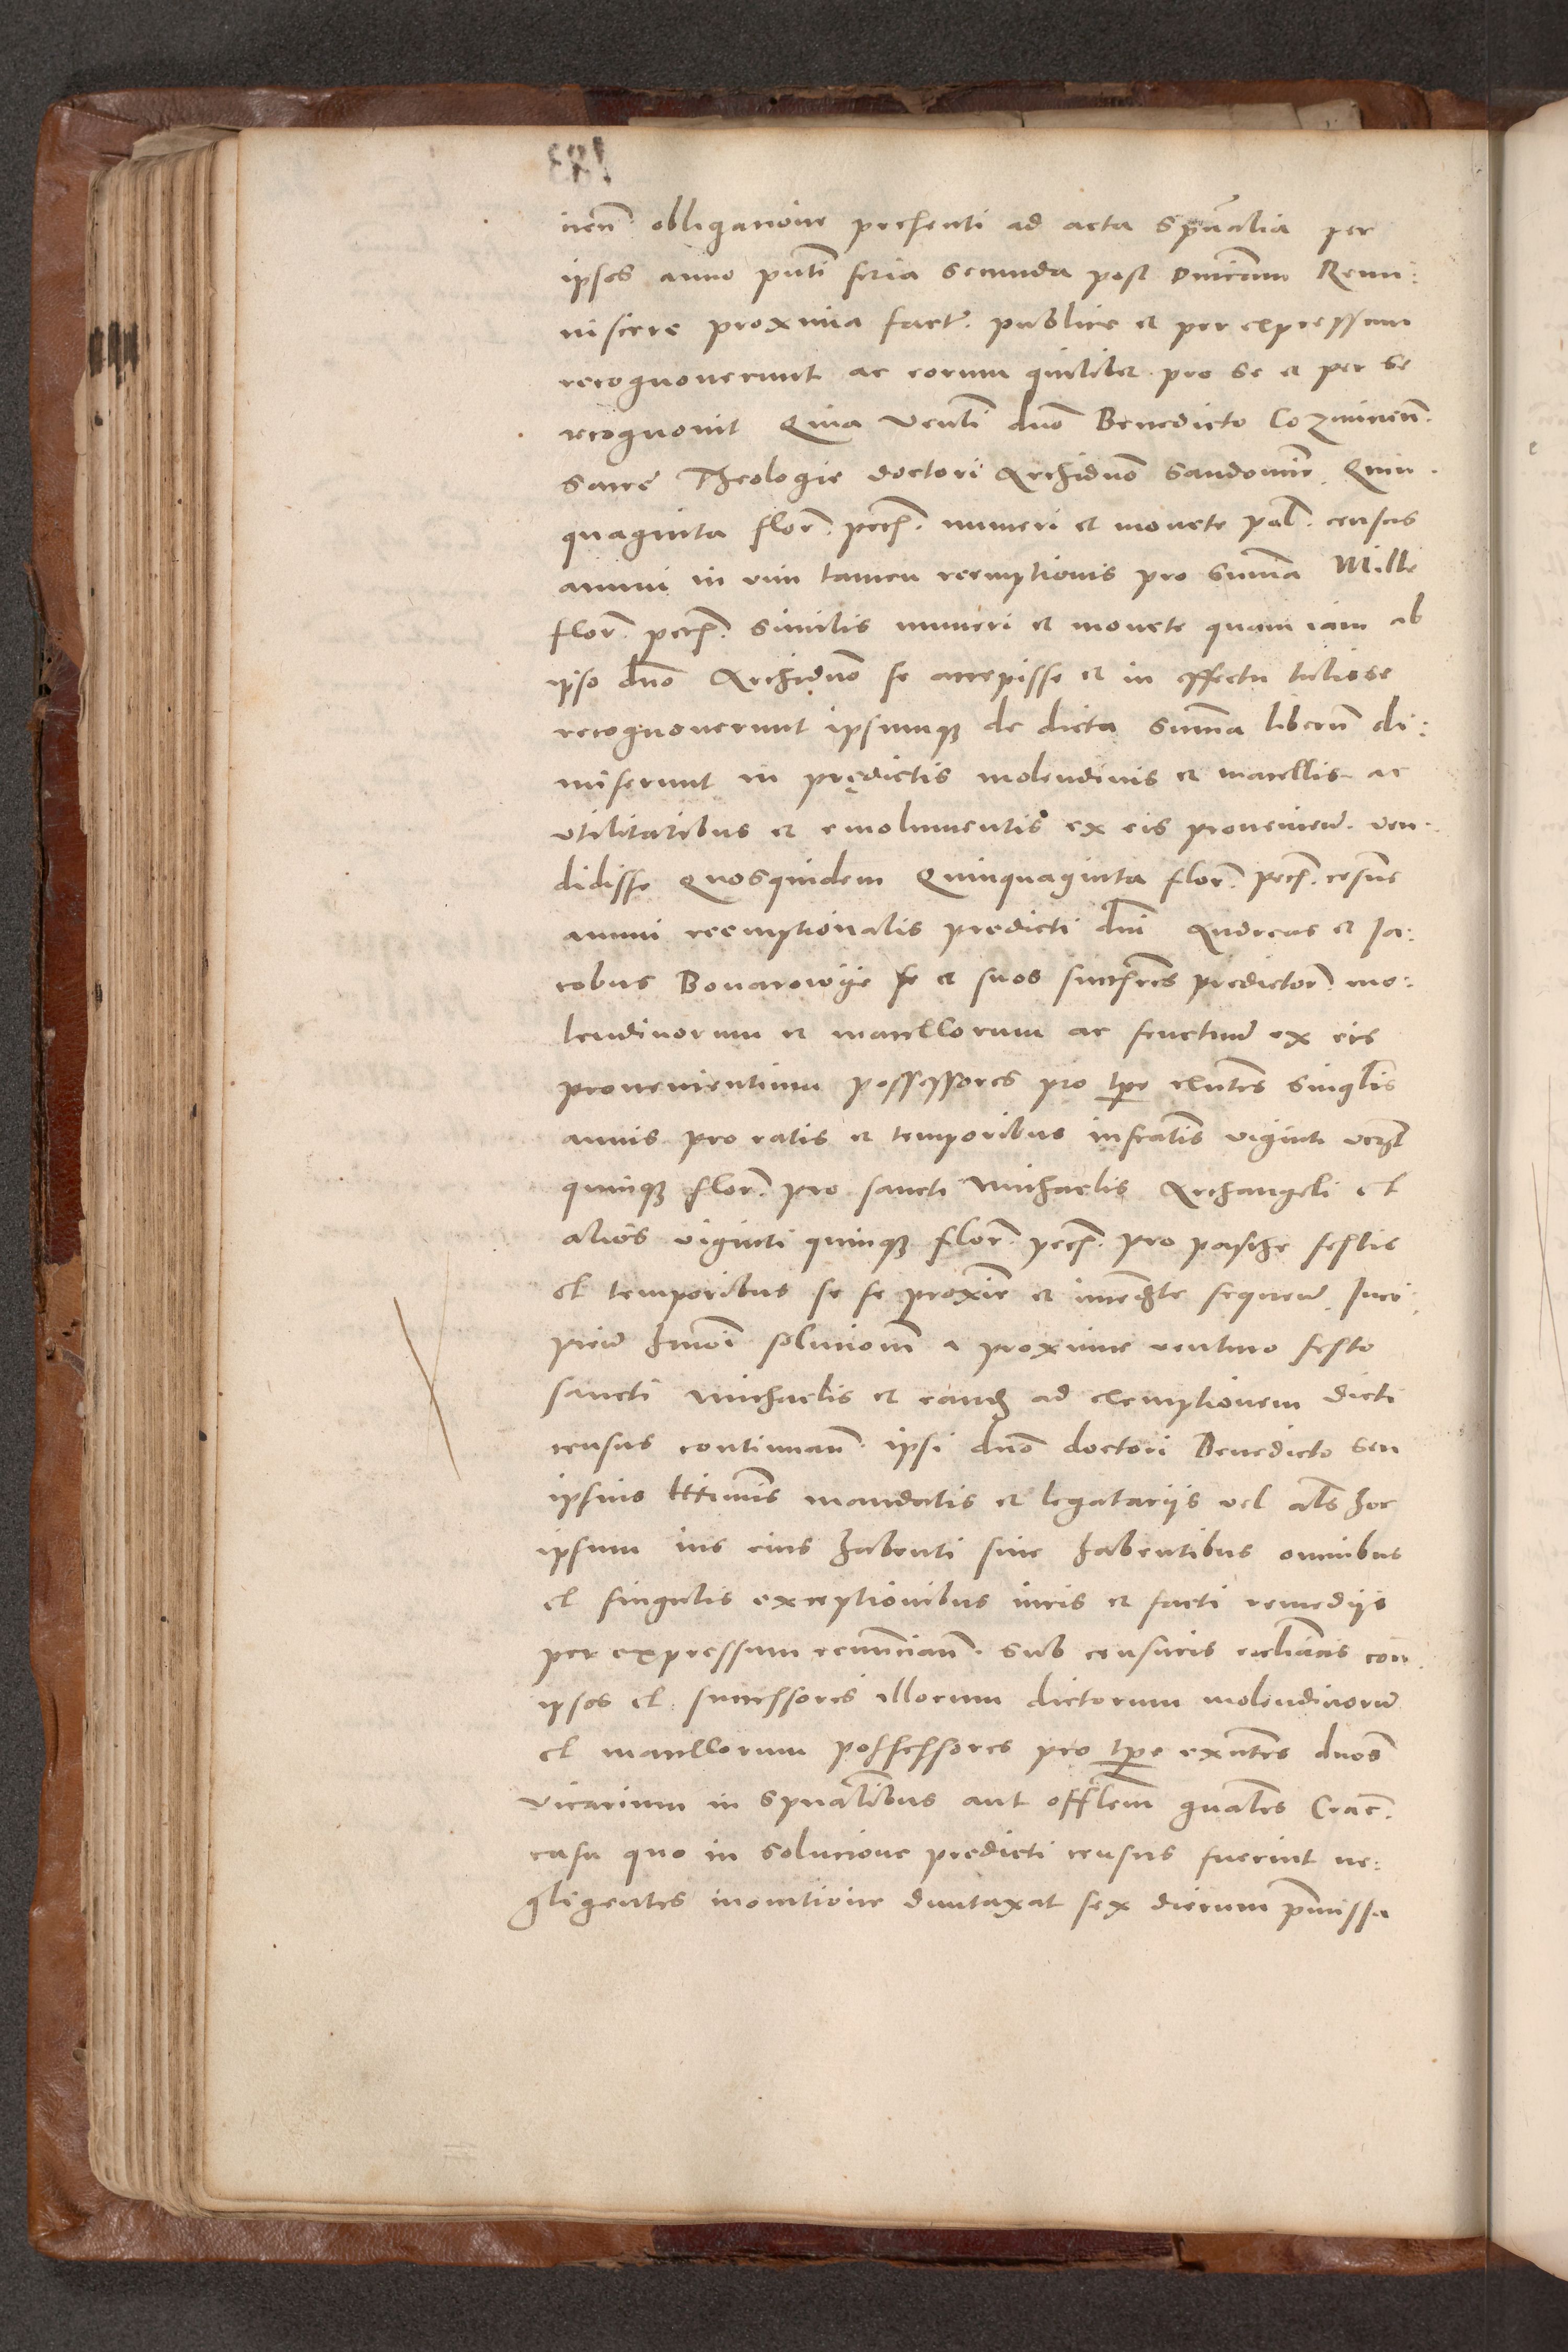 inen̄. obligatione presenti ad acta Spūalia per
ipsos anno pn̄ti feria Secunda post dn̄icam Remi:
niscere proxima fact. publice et per expressum
recognoverunt ac eorum quilibet pro se et per se
recognovit Quia Ven̄li dn̄o Benedicto Cozminen̄.
Sacre Theologie doctori Archidn̄o Sandomir̄. Quin.
quaginta flor̄. pecū. numeri et monete pol̄. census
annui in vim tamen reemptionis pro Sum̄a Mille
flor̄. pecū. Similis numeri et monete quam iam ab
ipso dn̄o Archidn̄o se accepisse et in effectu tulisse
recognoverunt ipsumq; de dicta Sum̄a liberū di:
miserunt in prędictis molendinis et macellis ac
vtilitatibus et emolumentis ex eis provenien̄. ven.
didisse Quosquidem Quinquaginta flor̄. pecū. cēsus
annui reemptionalis predicti dn̄i Andreas et Ja:
cobus Bonarowye se et suos succ̄res predictor̄. mo:
lendinorum et macellorum ac fructuū ex eis
provenientium possessores pro tp̄e exn̄tes Singl̄is
annis pro ratis et temporibus infrāt̄is viginti
quinq; flor̄. pro sancti Michaelis Archangeli et
alios viginti quinq; flor̄. pecū. pro pasche festis
et temporibus se se proxīe et im̄ed̄te sequeñ. Inci:
pieñ hm̄oi solucionē a proxime venturo festo
sancti Michaelis et eand; ad exemptionem dicti
census continuan̄. ipsi dn̄o doctori Benedicto seu
ipsius l̄ttimis mandatis et legatariis vel al̄s hoc
ipsum ius eius habenti sive habentibus omnibus
et singulis exceptionibus iuris et facti remediis
per expressum renūncian̄. Sub censuris eccl̄iacis con̄
ipsos et successores illorum dictorum molendinorū
et macellorum possessores pro tp̄e exn̄tes dn̄os
vicarium in Spūalibus aut offl̄em gn̄ales Crac̄.
casu quo in Solucione predicti census fuerint ne:
gligentes monitione duntaxat sex dierum p̄missa